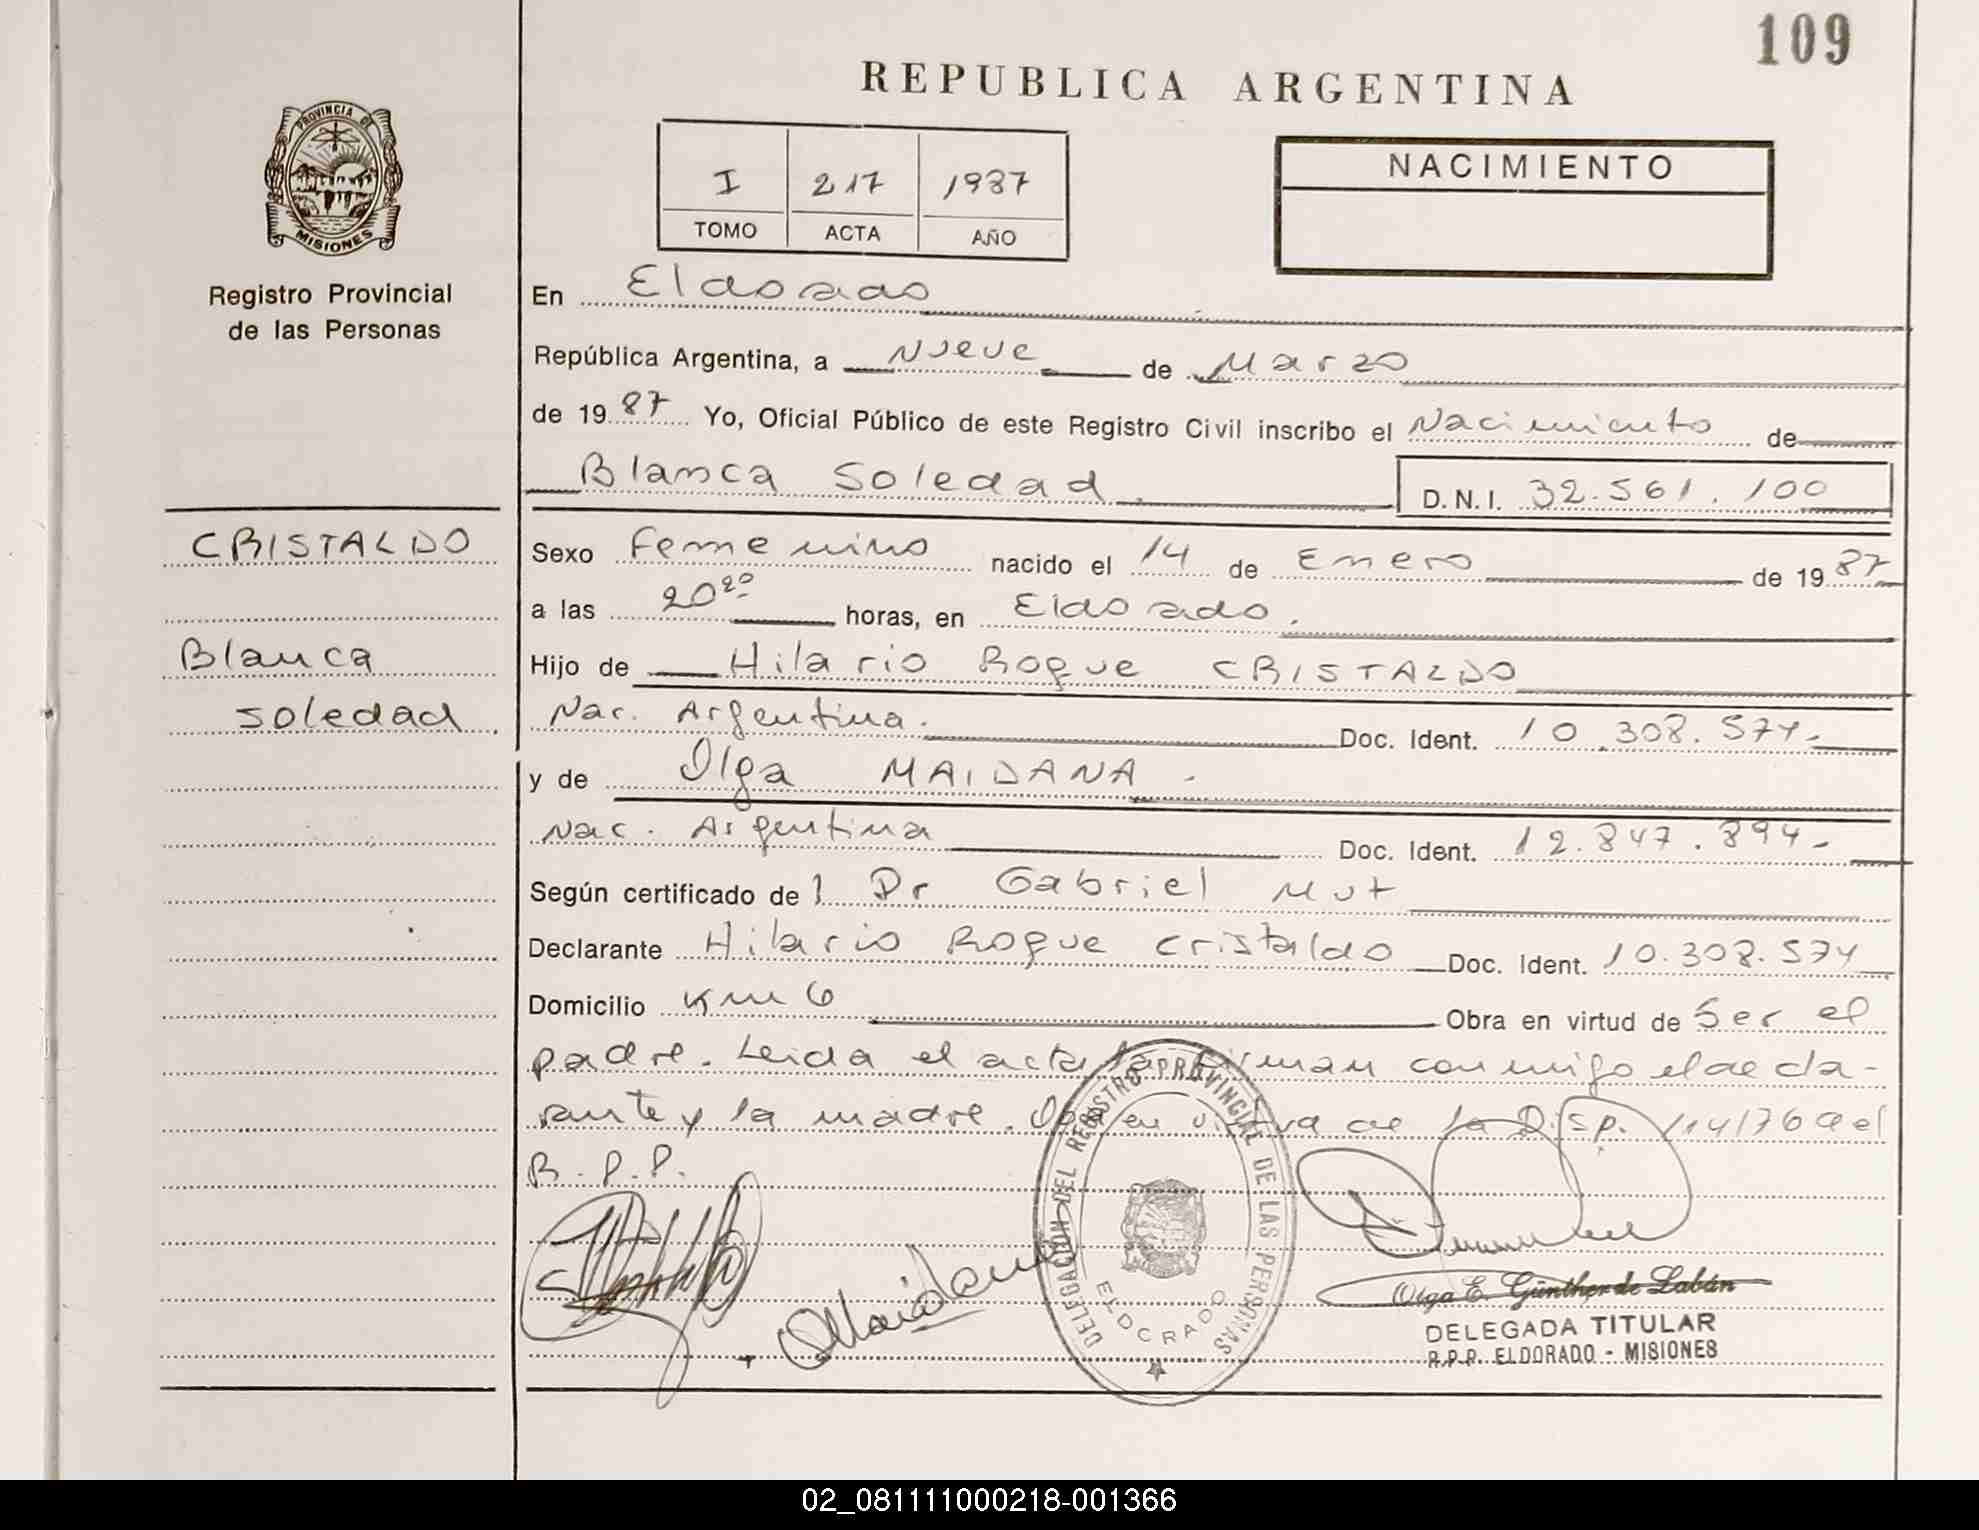 109
REPUBLICA ARGENTINA
PROVINCIA DE
MISIONES
Registro Provincial
de las Personas
I 217 1987
TOMO ACTA AÑO
NACIMIENTO
En Eldorado
República Argentina, a Nueve de Marzo
de 19 87 Yo, Oficial Público de este Registro Civil inscribo el Nacimiento de
Blanca Soledad. D.N.I. 32.561.100
CRISTALDO
Blanca
Soledad.
Sexo Femenino nacido el 14 de Enero de 19 87
a las 20²⁰ horas, en Eldorado.
Hijo de Hilario Roque CRISTALDO
Nac. Argentina. Doc. Ident. 10.308.574.-
y de Olga MAIDANA -
Nac. Argentina Doc. Ident. 12.847.894-
Según certificado de l Dr Gabriel Mut
Declarante Hilario Roque Cristaldo Doc. Ident. 10.308.574
Domicilio Km 6 Obra en virtud de Ser el
padre. Leida el acta la firman conmigo el decla-
rante y la madre. en de la Disp. 114/76 del
R.P.P.
DELEGACION DEL REGISTRO PROVINCIAL DE LAS PERSONAS
ELDORADO
OMaidana
Olga E. Günther de Labán
DELEGADA TITULAR
R.P.P. ELDORADO - MISIONES
02_081111000218-001366